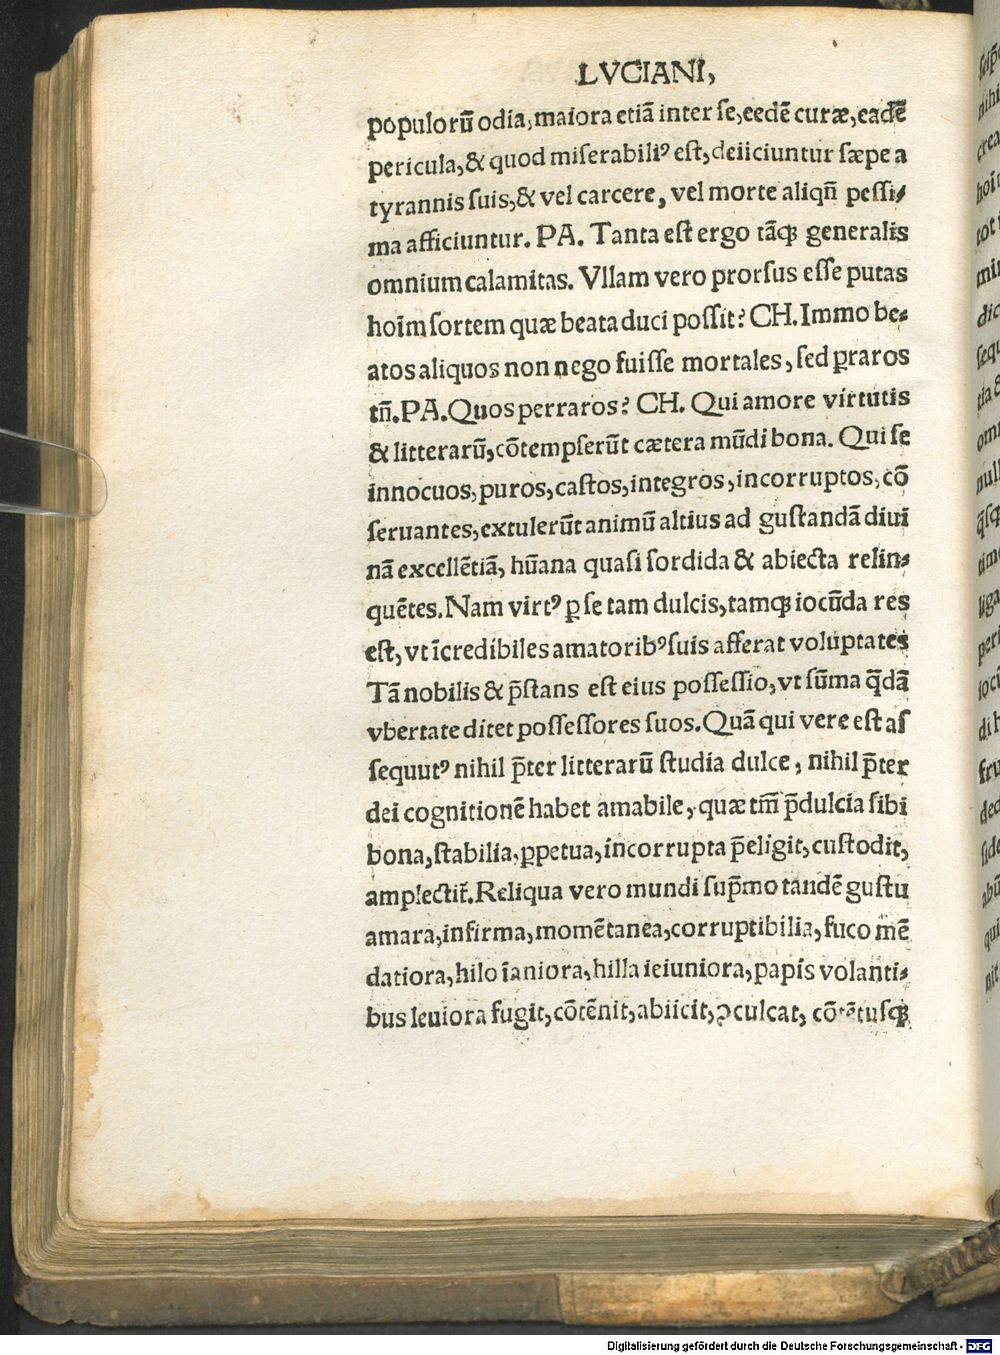 LVCIANI,
populorū odia, maiora etiā inter se, eedē curæ, eadē
pericula, & quod miserabiliꝰ est, deiiciuntur sæpe a
tyrannis suis, & vel carcere, vel morte aliqñ pessi-
ma afficiuntur. PA. Tanta est ergo tāqꝫ generalis
omnium calamitas. Vllam vero prorsus esse putas
hoīm sortem quæ beata duci possit? CH. Immo be-
atos aliquos non nego fuisse mortales, sed ꝑraros
tñ. PA. Quos perraros? CH. Qui amore virtutis
& litterarū, cōtempserūt cætera mūdi bona. Qui se
innocuos, puros, castos, integros, incorruptos, cō
seruantes, extulerūt animū altius ad gustandā diui
nā excellētiā, hūana quasi sordida & abiecta relin-
quētes. Nam virtꝰ ꝑ se tam dulcis, tamqꝫ iocūda res
est, vt īcredibiles amatoribꝰ suis afferat voluptates
Tā nobilis & p̄stans est eius possessio, vt sūma q̄dā
vbertate ditet possessores suos. Quā qui vere est as
sequutꝰ nihil p̄ter litterarū studia dulce, nihil p̄ter
dei cognitionē habet amabile, quæ tm̄ p̄dulcia sibi
bona, stabilia, ꝑpetua, incorrupta p̄eligit, custodit,
amplectit̃. Reliqua vero mundi sup̄mo tandē gustu
amara, infirma, momētanea, corruptibilia, fuco mē
datiora, hilo īaniora, hilla ieiuniora, papis volanti-
bus leuiora fugit, cōtēnit, abiicit, ꝯculcat, cōtētusqꝫ
Digitalisierung gefördert durch die Deutsche Forschungsgemeinschaft - DFG